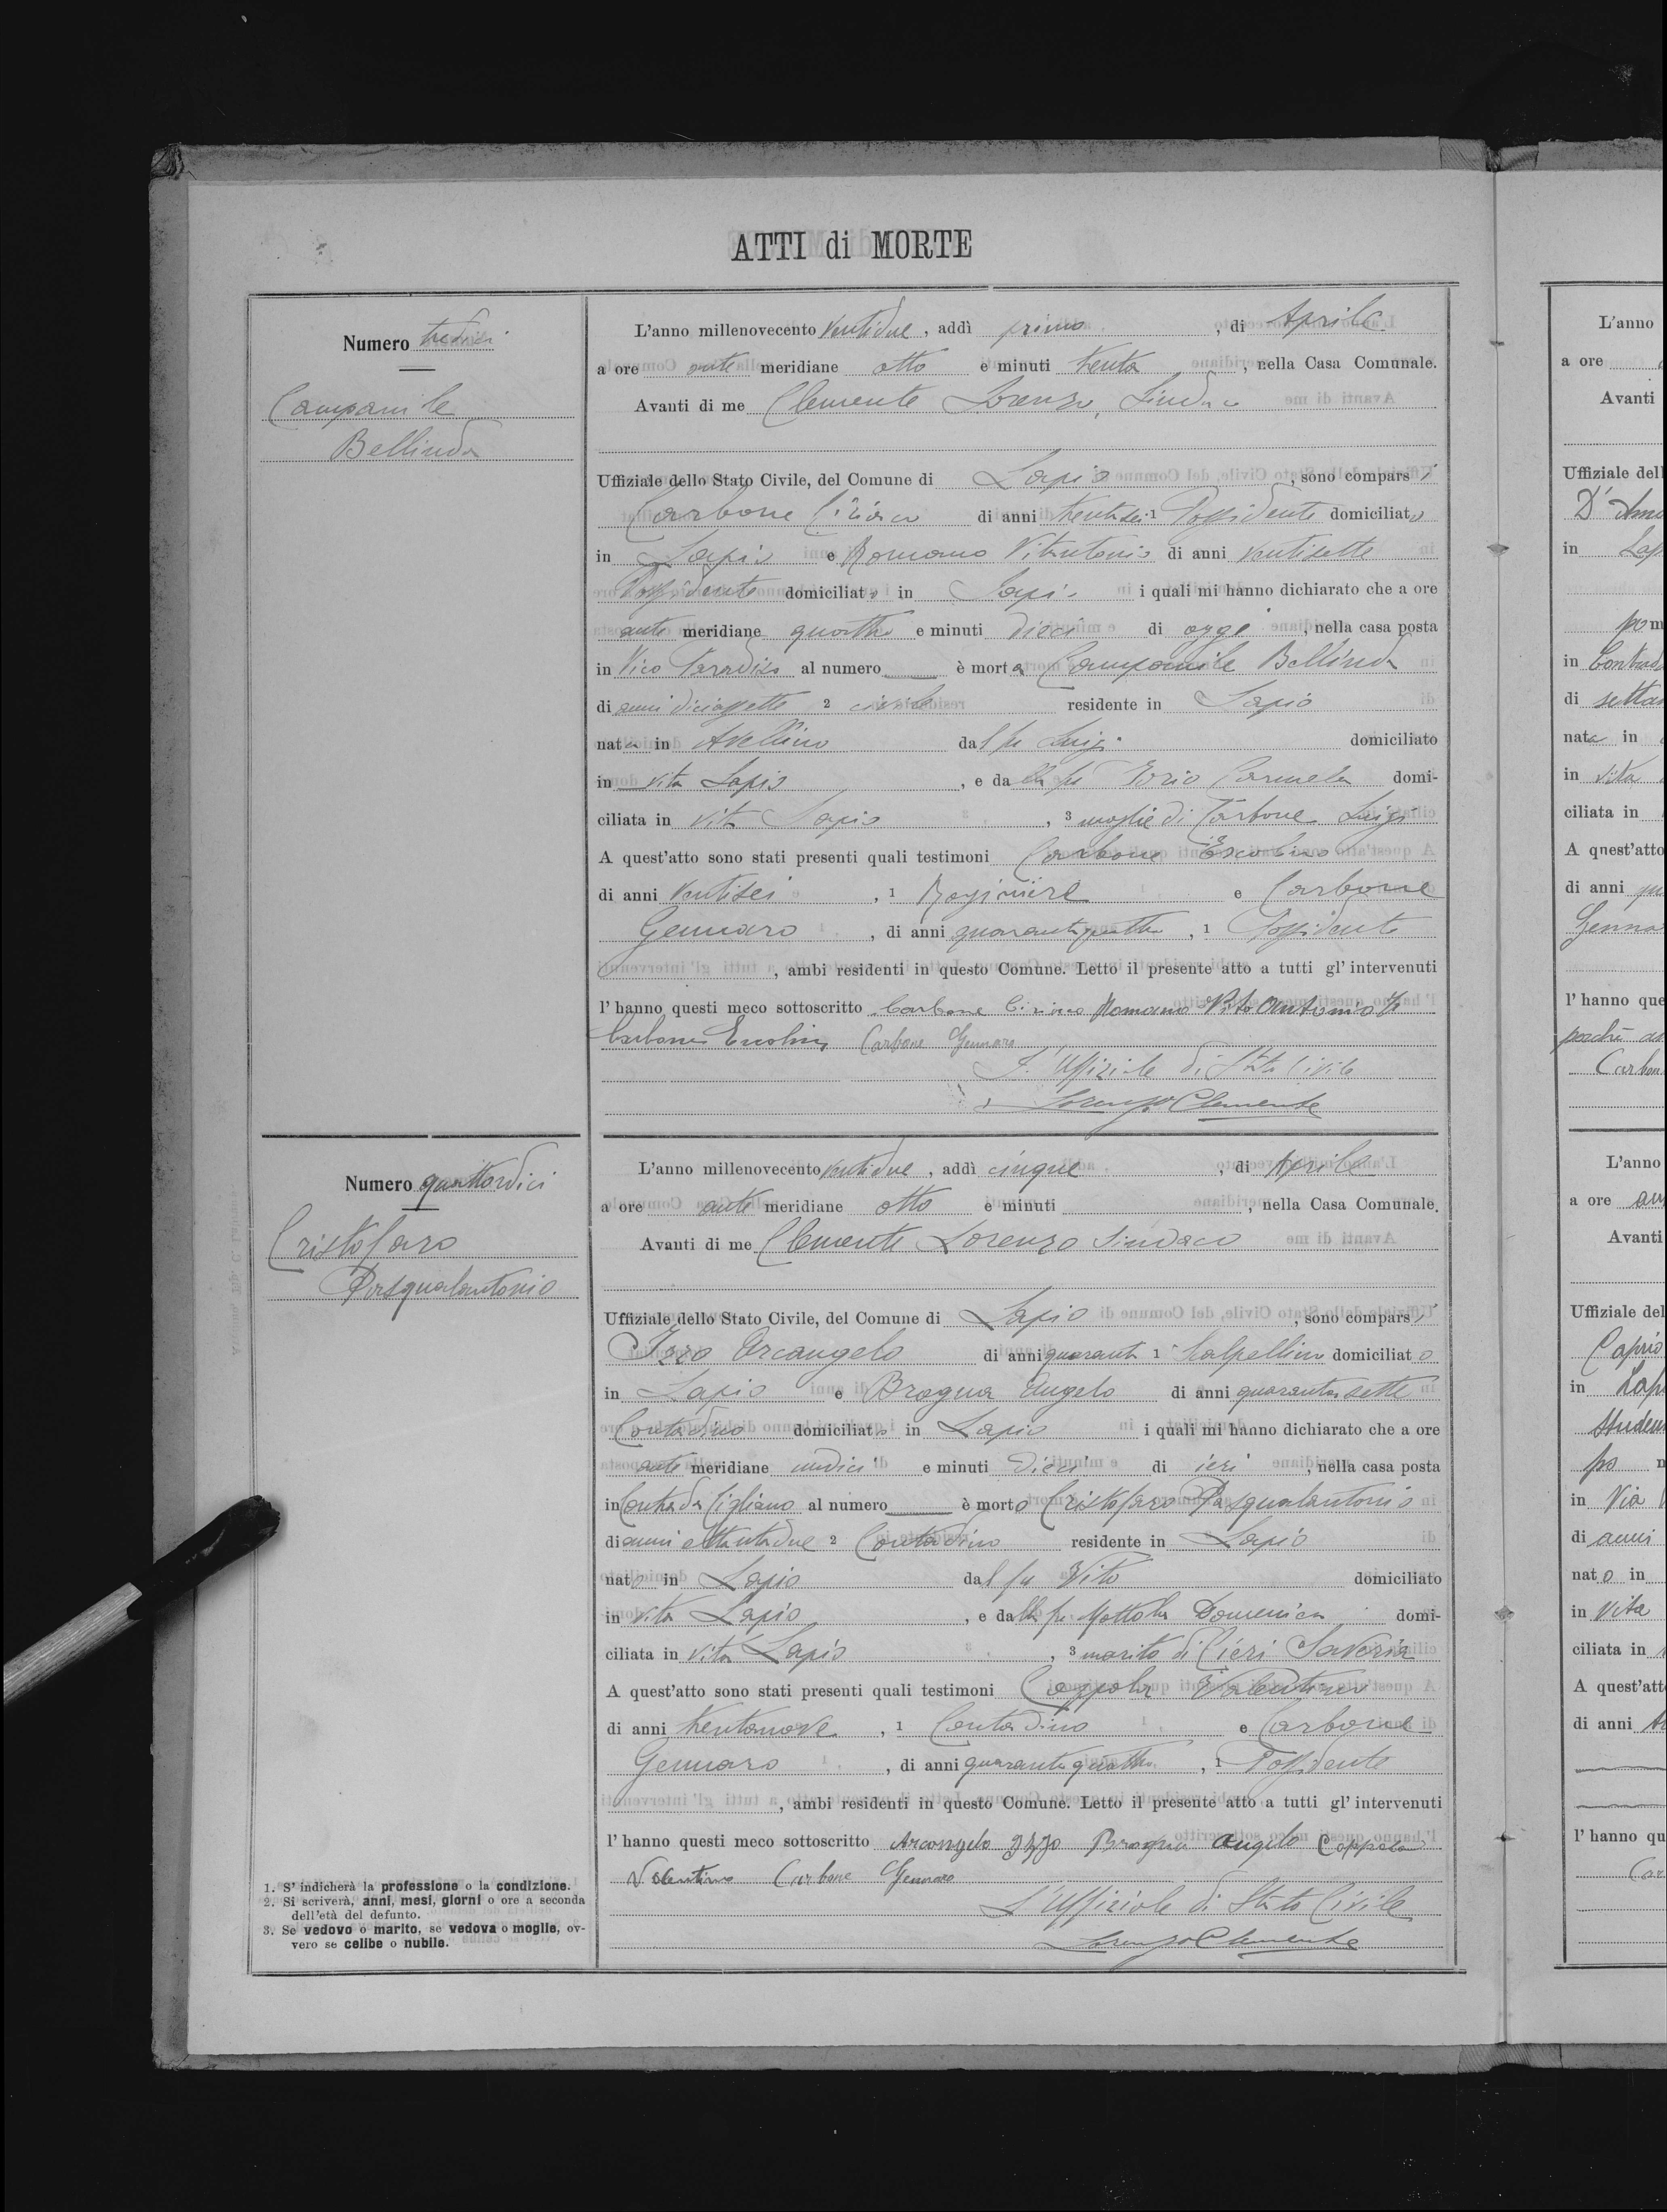 ATTI di MORTE
Numero tredici
Campanile
Bellinda
L'anno millenovecento ventidue, addì primo, di Aprile
a ore ante meridiane otto e minuti trenta, nella Casa Comunale.
Avanti di me Clemente Lorenzo, Sindaco
Uffiziale dello Stato Civile, del Comune di Lapio, sono comparsi
Carbone Ciriaco di anni trentasei 1 Possidente domiciliato
in Lapio e Romano Vitantonio di anni ventisette
Possidente domiciliato in Lapio i quali mi hanno dichiarato che a ore
ante meridiane quattro e minuti dieci di oggi, nella casa posta
in Vico Paradiso al numero è morta Campanile Bellinda
di anni diciassette 2 civile residente in Lapio
nata in Avellino dal fu Luigi domiciliato
in vita Lapio, e dalla fu Iorio Carmela domi-
ciliata in vita Lapio, 3 moglie di Carbone Luigi
A quest'atto sono stati presenti quali testimoni Carbone Ercolino
di anni ventisei, 1 Ragioniere e Carbone
Gennaro, di anni quarantaquattro, 1 Possidente
, ambi residenti in questo Comune. Letto il presente atto a tutti gl' intervenuti
l' hanno questi meco sottoscritto Carbone Ciriaco Romano Vito Antonio
Carbone Ercolino Carbone Gennaro
L'Uffiziale di Stato Civile
Lorenzo Clemente
Numero quattordici
Cristofaro
Pasqualantonio
L'anno millenovecento ventidue, addì cinque, di Aprile
a ore ante meridiane otto e minuti, nella Casa Comunale.
Avanti di me Clemente Lorenzo Sindaco
Uffiziale dello Stato Civile, del Comune di Lapio, sono comparsi
Izzo Arcangelo di anni quaranta 1 Scalpellino domiciliato
in Lapio e Bragna Angelo di anni quarantasette
Contadino domiciliato in Lapio i quali mi hanno dichiarato che a ore
ante meridiane undici e minuti dieci di ieri, nella casa posta
in Contrada Cigliano al numero è morto Cristofaro Pasqualantonio
di anni ottantadue 2 Contadino residente in Lapio
nato in Lapio dal fu Vito domiciliato
in vita Lapio, e dalla fu Mottola Domenica domi-
ciliata in vita Lapio, 3 marito di Cieri Saveria
A quest'atto sono stati presenti quali testimoni Coppola Valentino
di anni trentanove, 1 Contadino e Carbone
Gennaro, di anni quarantaquattro, 1 Possidente
, ambi residenti in questo Comune. Letto il presente atto a tutti gl' intervenuti
l' hanno questi meco sottoscritto Arcangelo Izzo Bragna Angelo Coppola
Valentino Carbone Gennaro
L'Uffiziale di Stato Civile
Lorenzo Clemente
1. S' indicherà la professione o la condizione.
2. Si scriverà, anni, mesi, giorni o ore a seconda
dell'età del defunto.
3. Se vedovo o marito, se vedova o moglie, ov-
vero se celibe o nubile.
L'anno
a ore
Avanti
Uffiziale del
in Lap
in Contrad
di settan
nata in
in vita
ciliata in
A quest'atto
di anni
Genna
l' hanno que
Carbon
L'anno
a ore an
Avanti
Uffiziale del
Caprio
in Lapi
studen
in Via
di anni
nato in
in vita
ciliata in
A quest'att
di anni
l' hanno qu
Car